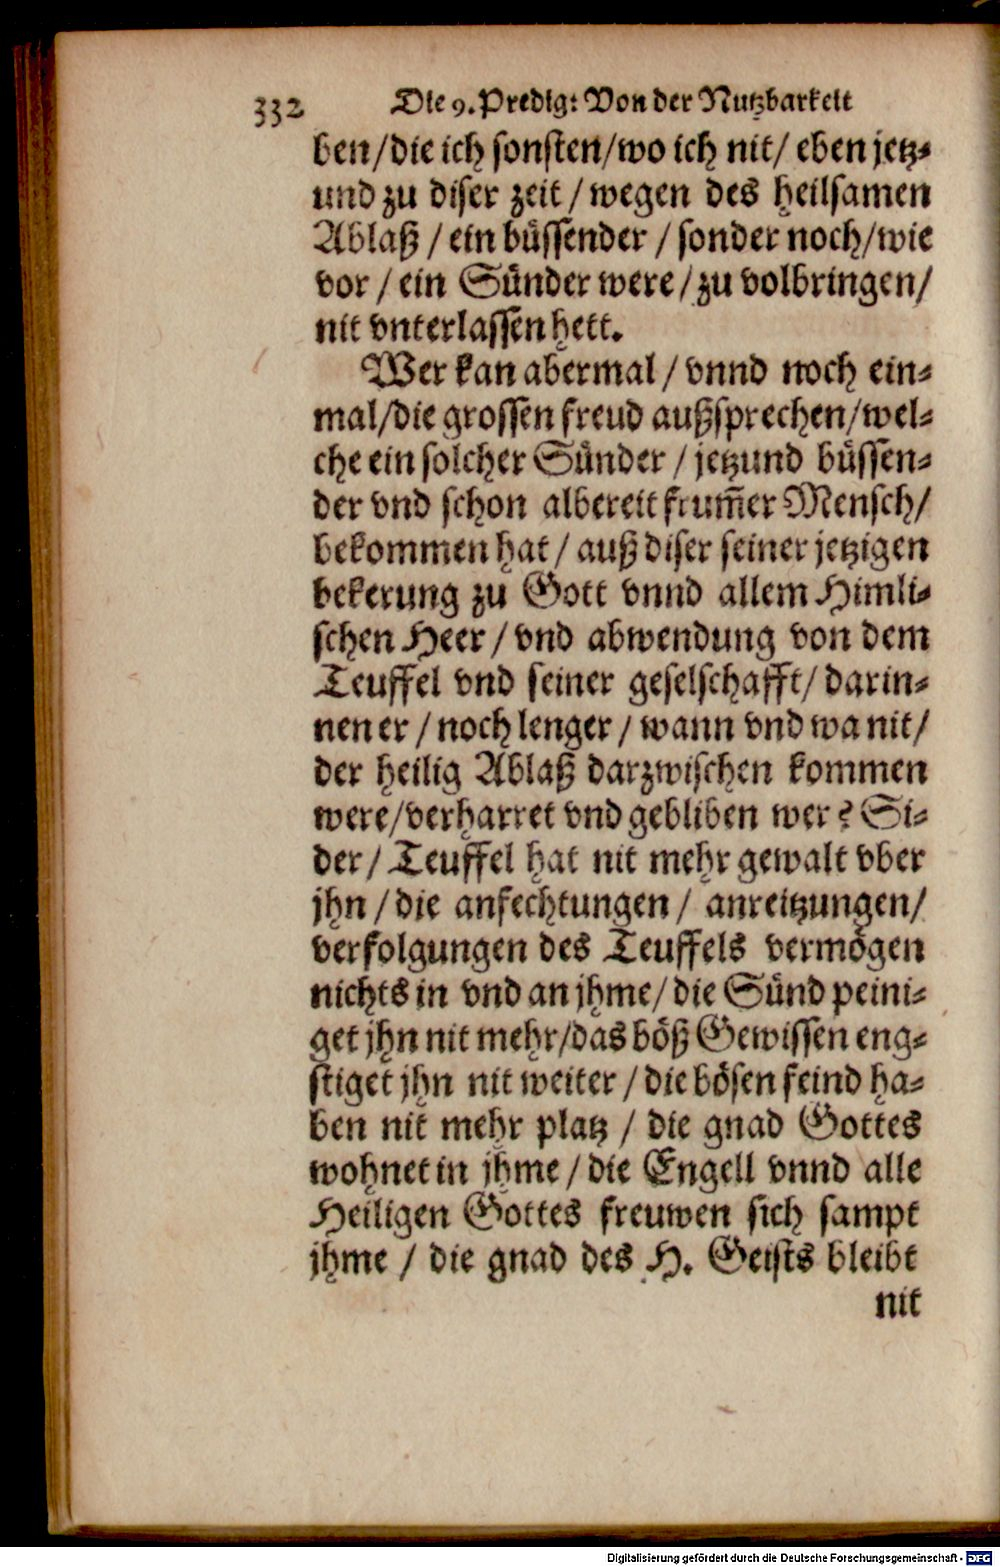 332 Die 9. Predig: Von der Nutzbarkeit
ben/die ich sonsten/wo ich nit/ eben jetz-
und zu diser zeit / wegen des heilsamen
Ablaß / ein büssender / sonder noch/wie
vor / ein Sünder were / zu volbringen/
nit vnterlassen hett.
Wer kan abermal / vnnd noch ein-
mal/die grossen freud außsprechen/wel-
che ein solcher Sünder / jetzund büssen-
der vnd schon albereit frum̃er Mensch/
bekommen hat / auß diser seiner jetzigen
bekerung zu Gott vnnd allem Himli-
schen Heer / vnd abwendung von dem
Teuffel vnd seiner geselschafft/ darin-
nen er / noch lenger / wann vnd wa nit/
der heilig Ablaß darzwischen kommen
were/verharret vnd gebliben wer? Si-
der / Teuffel hat nit mehr gewalt vber
jhn / die anfechtungen / anreitzungen/
verfolgungen des Teuffels vermögen
nichts in vnd an jhme/ die Sünd peini-
get jhn nit mehr/das böß Gewissen eng-
stiget jhn nit weiter / die bösen feind ha-
ben nit mehr platz / die gnad Gottes
wohnet in jhme / die Engell vnnd alle
Heiligen Gottes freuwen sich sampt
jhme / die gnad des H. Geists bleibt
nit
Digitalisierung gefördert durch die Deutsche Forschungsgemeinschaft - DFG